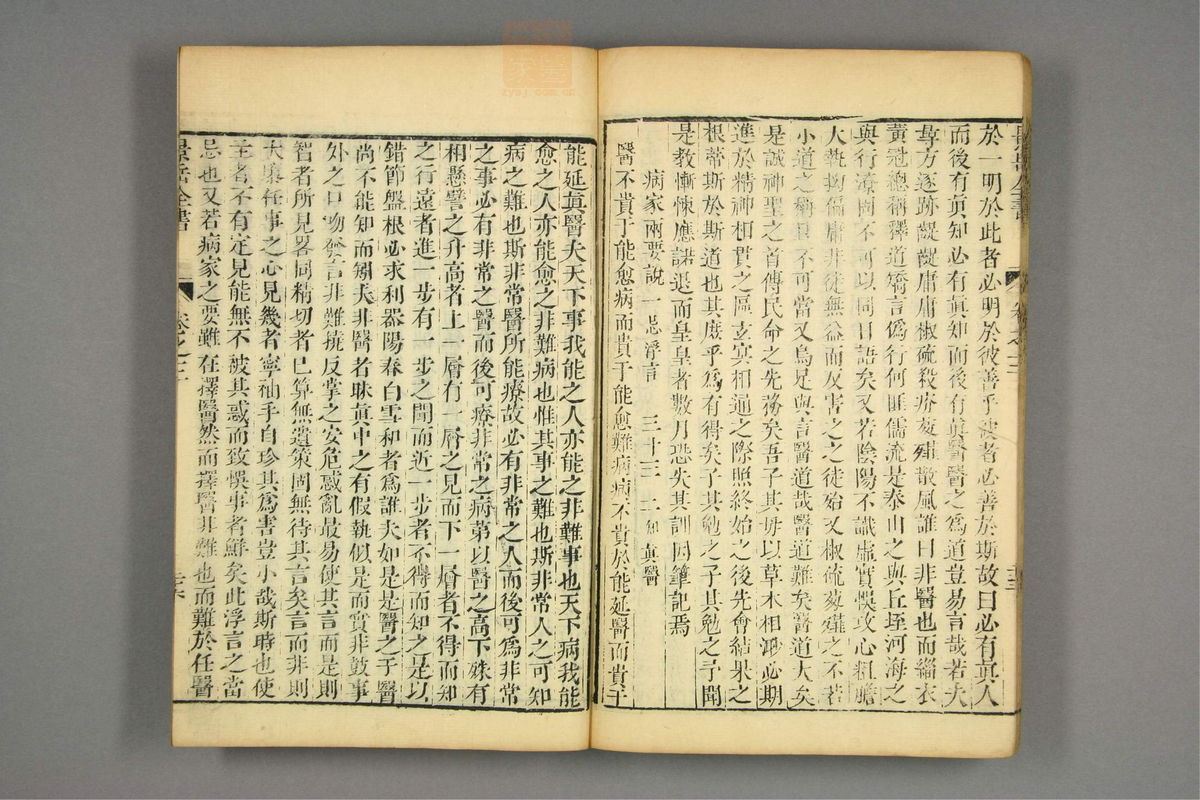 於一明於此者必明於彼善乎彼者必善於斯故曰必有眞人
而後有眞知必有眞知而後有眞醫醫之爲道豈易言哉若夫
尋方逐跡齪齪庸庸椒硫殺疥葱薤散風誰曰非醫也而緇衣
黃冠總稱釋道矯言僞行何匪儒流是泰山之與丘垤河海之
與行潦固不可以同日語矣又若陰陽不識虛實悞攻心粗膽
大執拗偏庸非徒無益而反害之之徒殆又椒硫葱薤之不若
小道之稱且不可當又烏足與言醫道哉醫道難矣醫道大矣
是誠神聖之首傳民命之先務矣吾子其毋以草木相渺必期
進於精神相貫之區玄冥相通之際照終始之後先會結果之
根蒂斯於斯道也其庶乎爲有得矣子其勉之子其勉之予聞
是教慚悚應諾退而皇皇者數月恐失其訓因筆記焉
病家兩要說 一忌浮言 三十三 二知眞醫
醫不貴于能愈病而貴于能愈難病病不貴於能延醫而貴于
能延眞醫夫天下事我能之人亦能之非難事也天下病我能
愈之人亦能愈之非難病也惟其事之難也斯非常人之可知
病之難也斯非常醫所能療故必有非常之人而後可爲非常
之事必有非常之醫而後可療非常之病第以醫之高下殊有
相懸譬之升高者上一層有一層之見而下一層者不得而知
之行遠者進一步有一步之聞而近一步者不得而知之是以
錯節盤根必求利器陽春白雪和者爲誰夫如是是醫之于醫
尚不能知而矧夫非醫者昧眞中之有假執似是而實非鼓事
外之口吻發言非難撓反掌之安危惑亂最易使其言而是則
智者所見畧同精切者已算無遺策固無待其言矣言而非則
大隳任事之心見幾者寧袖手自珍其爲害豈小哉斯時也使
主者不有定見能無不被其惑而致悞事者鮮矣此浮言之當
忌也又若病家之要雖在擇醫然而擇醫非難也而難於任醫
景岳全書
卷之三